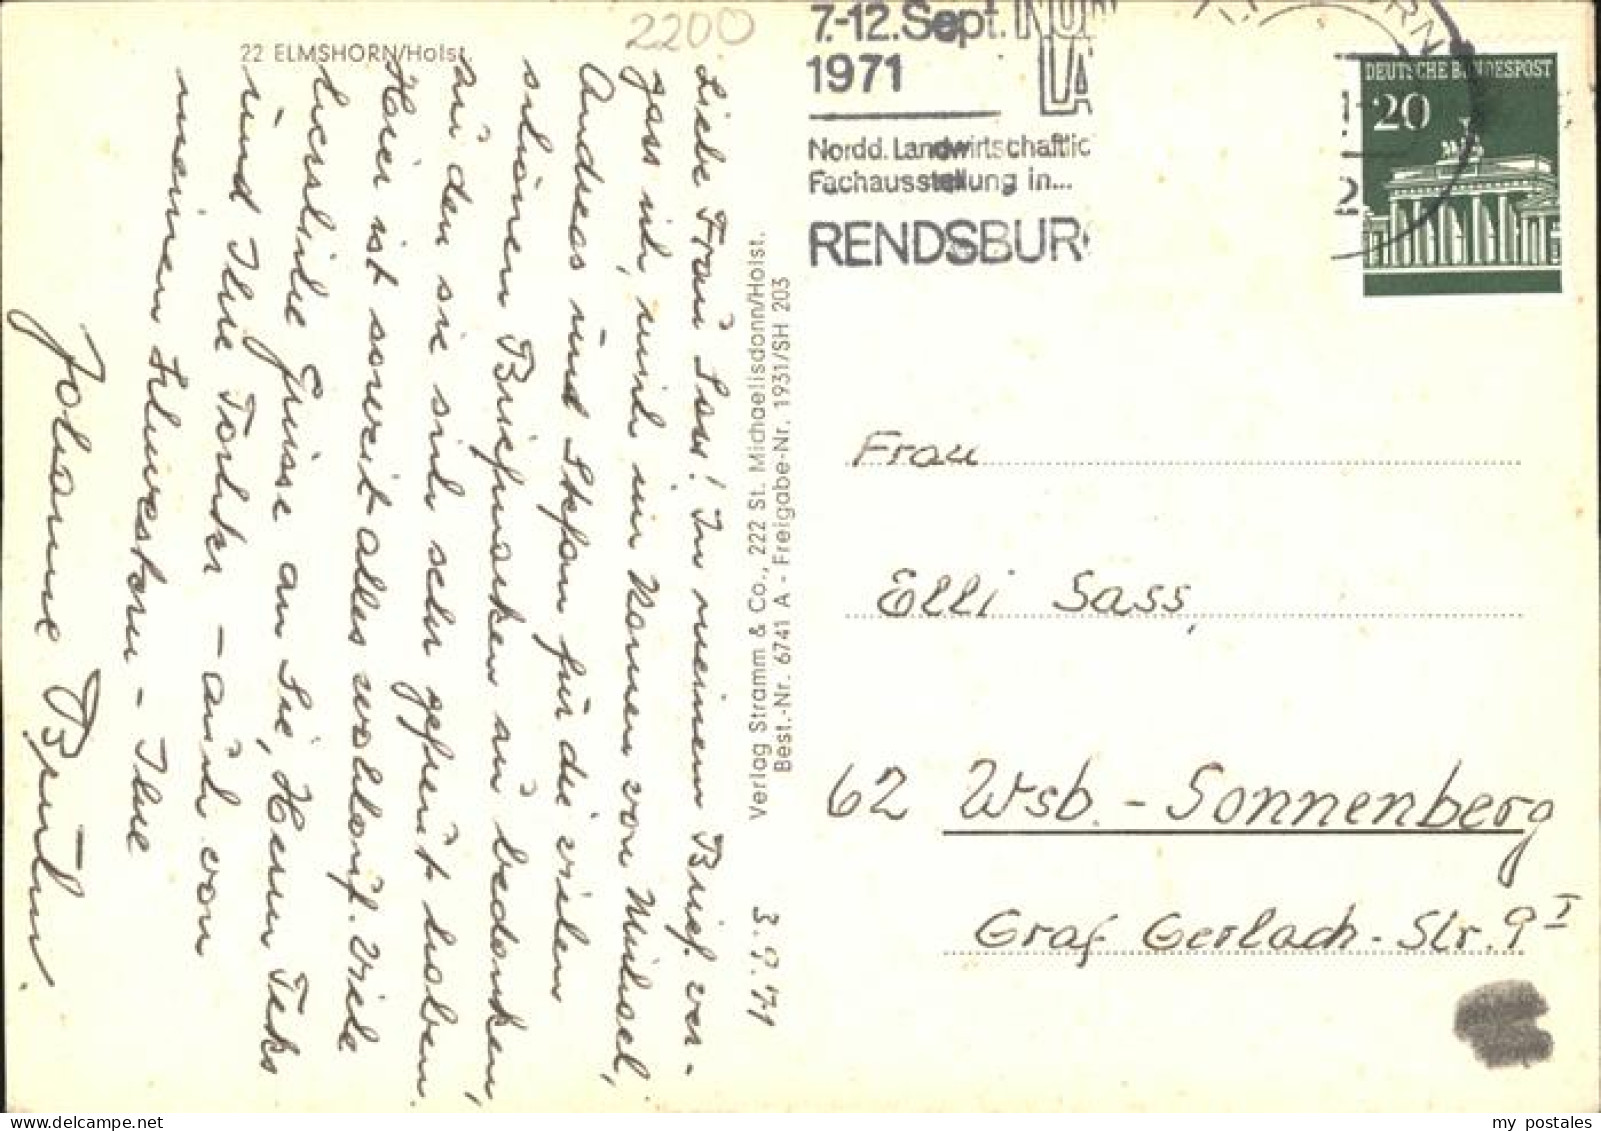 22 ELMSHORN/Holst.
2200
7.-12. Sept.
1971
Nordd. Landwirtschaftlic
Fachausstellung in...
RENDSBUR
DEUTSCHE BUNDESPOST
20
Liebe Frau Sass! In meinem Brief ver-
gass ich, mich im Namen von Michael,
Andreas und Stefan für die vielen
schönen Briefmarken zu bedanken,
zu den sie sich sehr gefreut haben.
Hier ist soweit alles wohlauf. Viele
herzliche Grüsse an Sie, Herrn
und Ihre Tochter - auch von
meinen Schwestern - Ihre
Johanne
Verlag Stramm & Co., 222 St. Michaelisdonn/Holst.
Best.-Nr. 6741 A - Freigabe-Nr. 1931/SH 203
3.9.71
Frau
Elli Sass,
62 Wsb. - Sonnenberg
Graf Gerlach-Str. 9 I
my postales